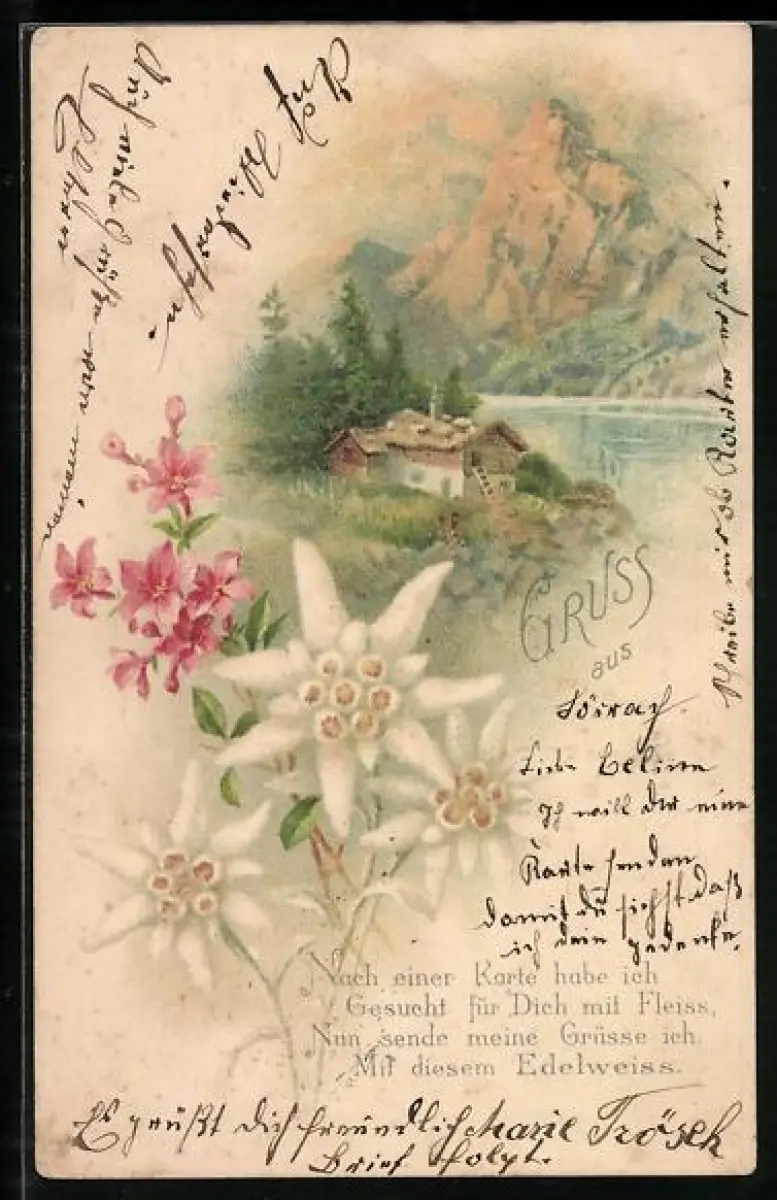 GRUSS
aus
Lörrach.
Liebe Celine
Ich will dir eine
Karte senden
damit du siehst daß
ich dein gedenke.
Nach einer Karte habe ich
Gesucht für Dich mit Fleiss,
Nun sende meine Grüsse ich
Mit diesem Edelweiss.
Es grüßt dich freundlich Marie Trösch
Brief folgt.
Schreibe mir ob Karten erhalten.
Auf
Auch viele Grüße von meinen